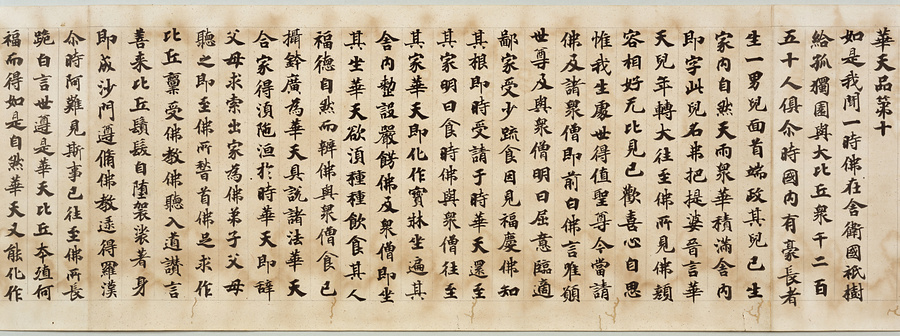 華天品第十
如是我聞一時佛在舍衛國祇樹
給孤獨園與大比丘衆千二百
五十人俱尒時國內有豪長者
生一男兒面首端政其兒已生
家內自然天雨衆華積滿舍內
即字此兒名弗把提婆晉言華
天兒年轉大往至佛所見佛顏
容相好无比見已歡喜心自思
惟我生處世得值聖尊今當請
佛及諸衆僧即前白佛言唯願
世尊及與衆僧明日屈意臨適
鄙家受少蔬食因見福慶佛知
其根即時受請于時華天還至
其家明日食時佛與衆僧往至
其家華天即化作寶牀坐遍其
舍內整設嚴餝佛及衆僧即坐
其坐華天欲湏種種飲食其人
福德自然而辦佛與衆僧食已
攝鉢廣為華天具說諸法華天
合家得湏陁洹於時華天即辝
父母求索出家為佛弟子父母
聽之即至佛所䭫首佛足求作
比丘稟受佛教佛聽入道讚言
善来比丘鬚髮自墮袈裟著身
即成沙門遵脩佛教逮得羅漢
尒時阿難見斯事已往至佛所長
跪白言世尊是華天比丘夲殖何
福而得如是自然華天又能化作